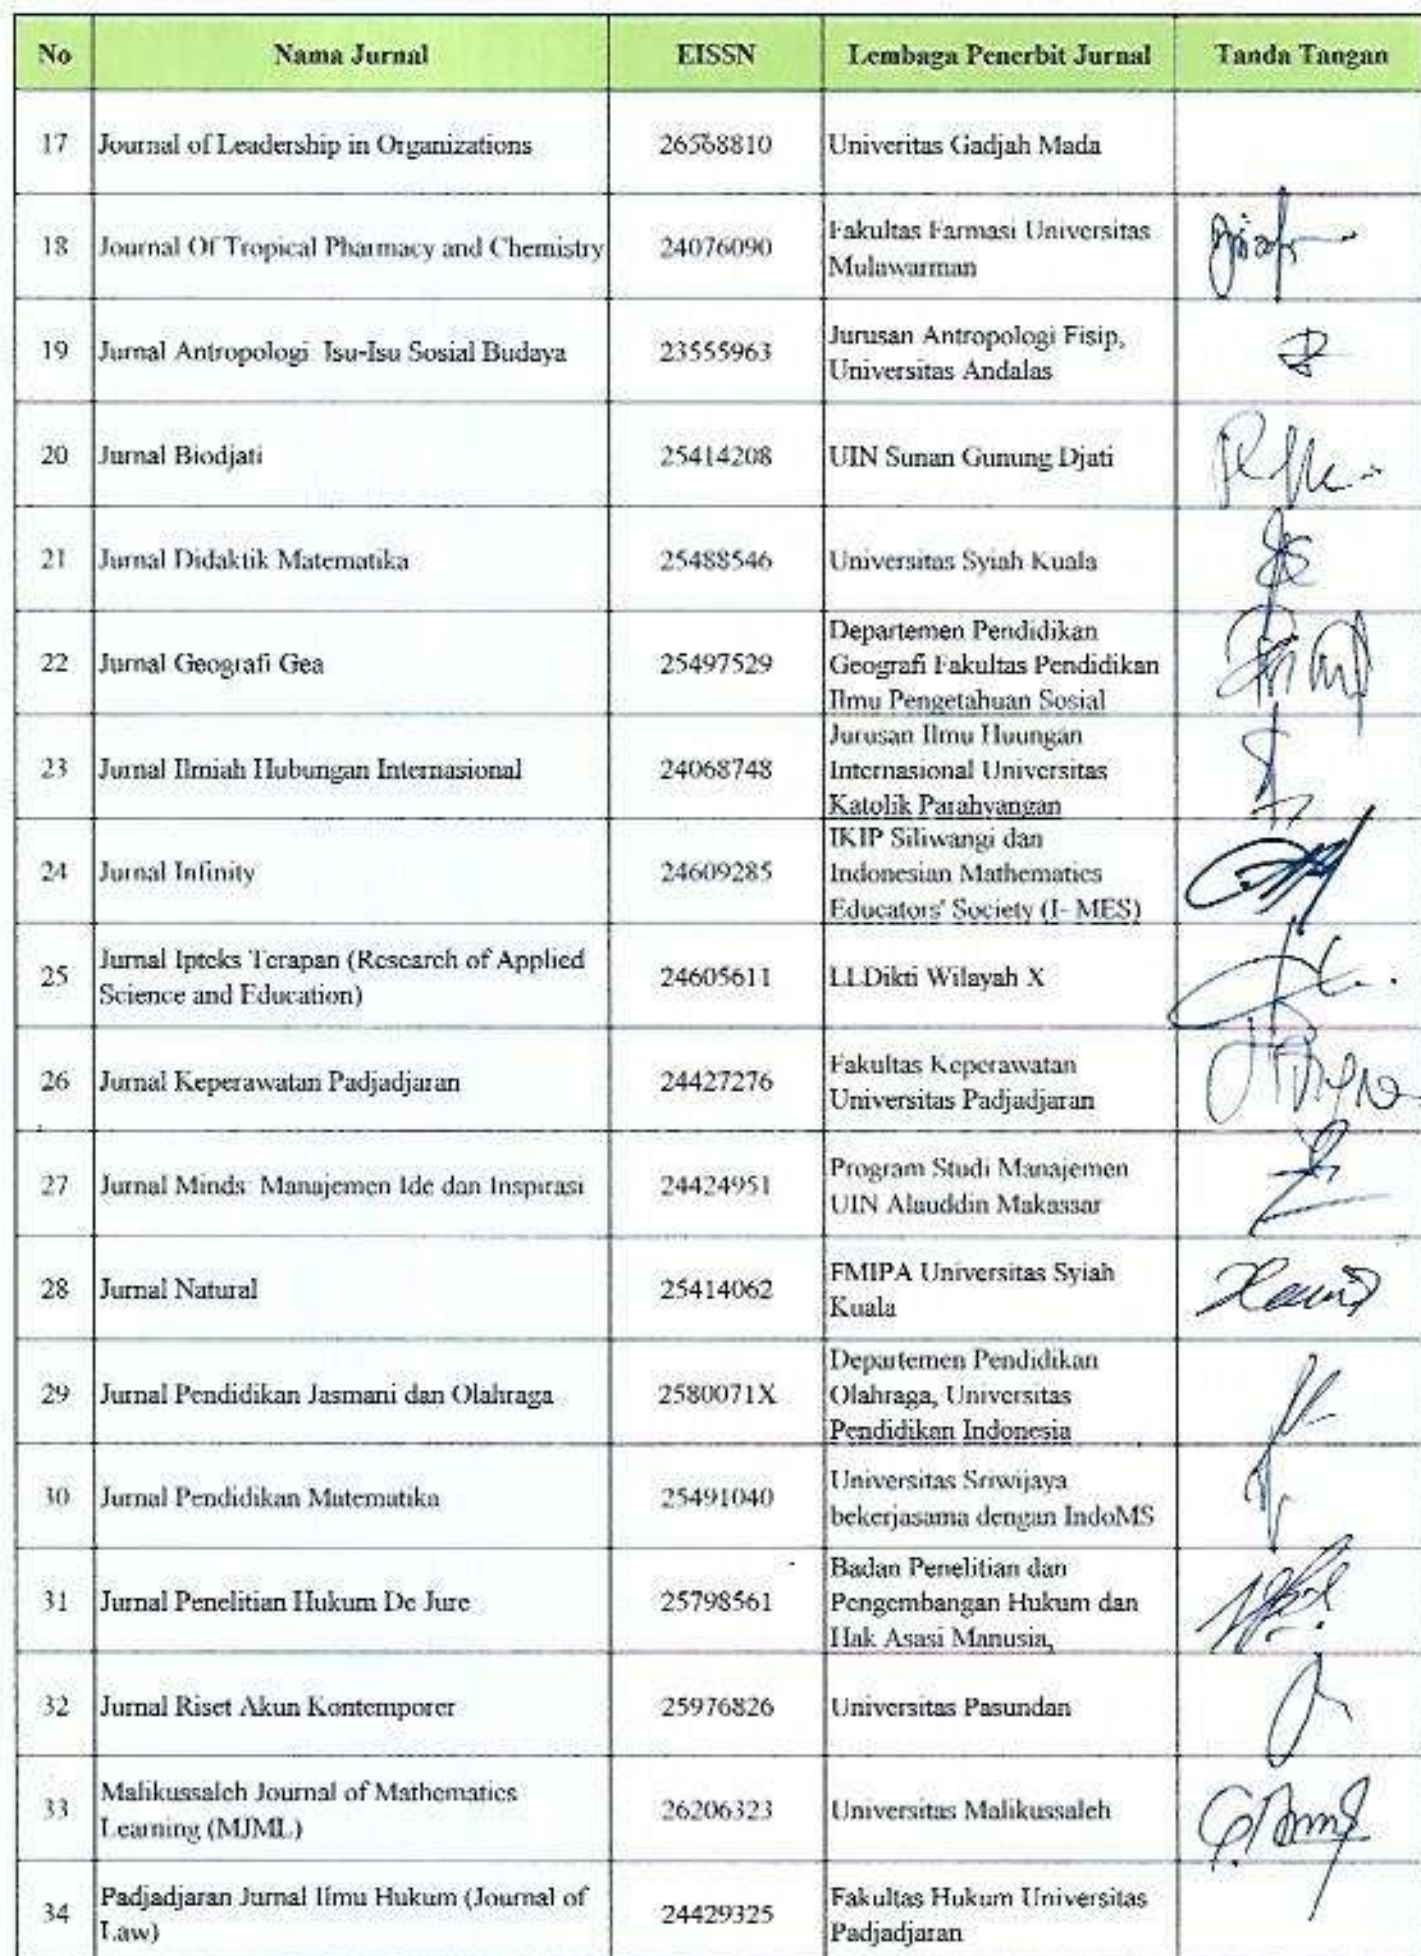 No Nama Jurnal EISSN Lembaga Penerbit Jurnal Tanda Tangan
17 Journal of Leadership in Organizations 26568810 Univeritas Gadjah Mada
18 Journal Of Tropical Pharmacy and Chemistry 24076090 Fakultas Farmasi Universitas
Mulawarman
19 Jurnal Antropologi Isu-Isu Sosial Budaya 23555963 Jurusan Antropologi Fisip,
Universitas Andalas
20 Jurnal Biodjati 25414208 UIN Sunan Gunung Djati
21 Jurnal Didaktik Matematika 25488546 Universitas Syiah Kuala
22 Jurnal Geografi Gea 25497529 Departemen Pendidikan
Geografi Fakultas Pendidikan
Ilmu Pengetahuan Sosial
23 Jurnal Ilmiah Hubungan Internasional 24068748 Jurusan Ilmu Huungan
Internasional Universitas
Katolik Parahyangan
24 Jurnal Infinity 24609285 IKIP Siliwangi dan
Indonesian Mathematics
Educators' Society (I- MES)
25 Jurnal Ipteks Terapan (Research of Applied
Science and Education) 24605611 LLDikti Wilayah X
26 Jurnal Keperawatan Padjadjaran 24427276 Fakultas Keperawatan
Universitas Padjadjaran
27 Jurnal Minds Manajemen Ide dan Inspirasi 24424951 Program Studi Manajemen
UIN Alauddin Makassar
28 Jurnal Natural 25414062 FMIPA Universitas Syiah
Kuala
29 Jurnal Pendidikan Jasmani dan Olahraga 2580071X Departemen Pendidikan
Olahraga, Universitas
Pendidikan Indonesia
30 Jurnal Pendidikan Matematika 25491040 Universitas Sriwijaya
bekerjasama dengan IndoMS
31 Jurnal Penelitian Hukum De Jure 25798561 Badan Penelitian dan
Pengembangan Hukum dan
Hak Asasi Manusia,
32 Jurnal Riset Akun Kontemporer 25976826 Universitas Pasundan
33 Malikussaleh Journal of Mathematics
Learning (MJML) 26206323 Universitas Malikussaleh
34 Padjadjaran Jurnal Ilmu Hukum (Journal of
Law) 24429325 Fakultas Hukum Universitas
Padjadjaran